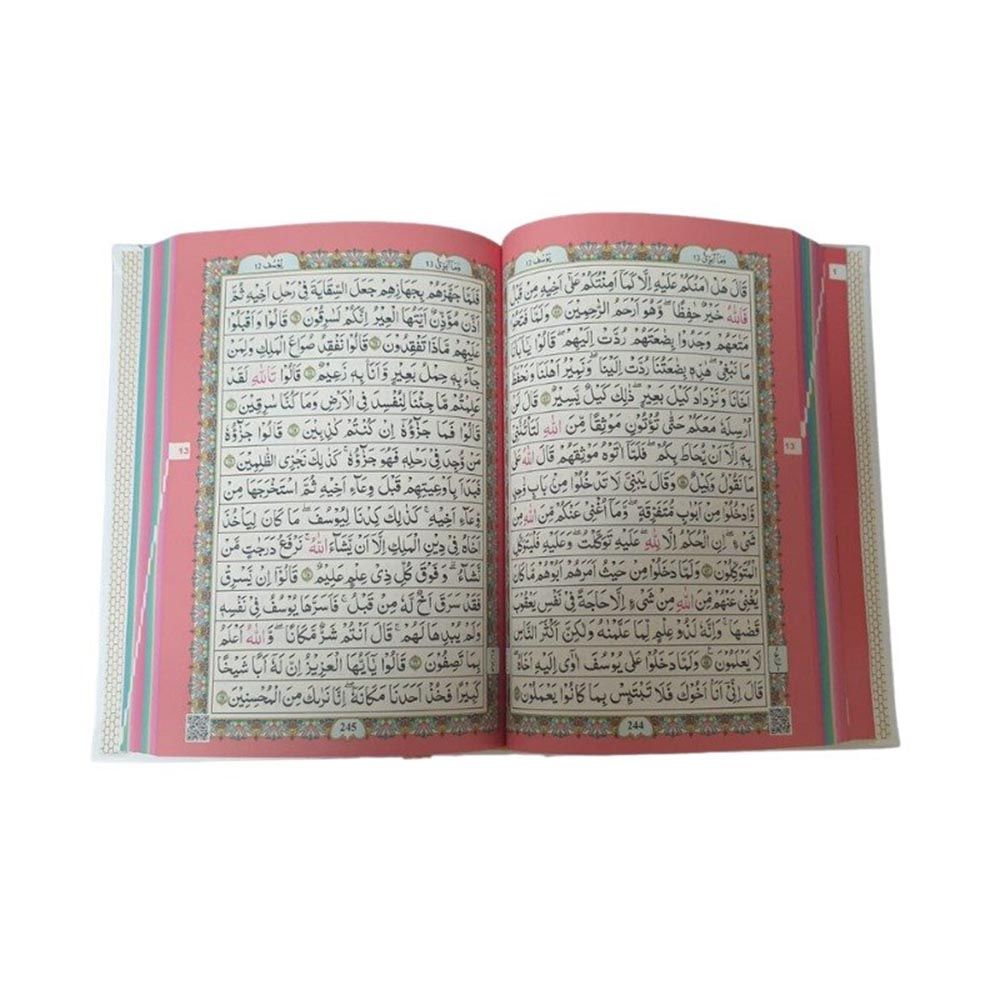 وَمَآ اُبَرِّئُ 13
يُوْسُف 12
قَالَ هَلْ اٰمَنُكُمْ عَلَيْهِ اِلَّا كَمَآ اَمِنْتُكُمْ عَلٰٓى اَخِيْهِ مِنْ قَبْلُ
فَاللّٰهُ خَيْرٌ حٰفِظًا ۖ وَّهُوَ اَرْحَمُ الرّٰحِمِيْنَ ۝ وَلَمَّا فَتَحُوْا
مَتَاعَهُمْ وَجَدُوْا بِضَاعَتَهُمْ رُدَّتْ اِلَيْهِمْ ۗ قَالُوْا يٰٓاَبَانَا
مَا نَبْغِيْ ۗ هٰذِهٖ بِضَاعَتُنَا رُدَّتْ اِلَيْنَا ۚ وَنَمِيْرُ اَهْلَنَا وَنَحْفَظُ
اَخَانَا وَنَزْدَادُ كَيْلَ بَعِيْرٍ ۗ ذٰلِكَ كَيْلٌ يَّسِيْرٌ ۝ قَالَ لَنْ
اُرْسِلَهٗ مَعَكُمْ حَتّٰى تُؤْتُوْنِ مَوْثِقًا مِّنَ اللّٰهِ لَتَأْتُنَّنِيْ
بِهٖٓ اِلَّآ اَنْ يُّحَاطَ بِكُمْ ۚ فَلَمَّآ اٰتَوْهُ مَوْثِقَهُمْ قَالَ اللّٰهُ عَلٰى
مَا نَقُوْلُ وَكِيْلٌ ۝ وَقَالَ يٰبَنِيَّ لَا تَدْخُلُوْا مِنْ بَابٍ وَّاحِدٍ
وَّادْخُلُوْا مِنْ اَبْوَابٍ مُّتَفَرِّقَةٍ ۗ وَمَآ اُغْنِيْ عَنْكُمْ مِّنَ اللّٰهِ مِنْ
شَيْءٍ ۗ اِنِ الْحُكْمُ اِلَّا لِلّٰهِ ۗ عَلَيْهِ تَوَكَّلْتُ ۚ وَعَلَيْهِ فَلْيَتَوَكَّلِ
الْمُتَوَكِّلُوْنَ ۝ وَلَمَّا دَخَلُوْا مِنْ حَيْثُ اَمَرَهُمْ اَبُوْهُمْ ۗ مَا كَانَ
يُغْنِيْ عَنْهُمْ مِّنَ اللّٰهِ مِنْ شَيْءٍ اِلَّا حَاجَةً فِيْ نَفْسِ يَعْقُوْبَ
قَضٰىهَا ۗ وَاِنَّهٗ لَذُوْ عِلْمٍ لِّمَا عَلَّمْنٰهُ وَلٰكِنَّ اَكْثَرَ النَّاسِ
لَا يَعْلَمُوْنَ ۝ وَلَمَّا دَخَلُوْا عَلٰى يُوْسُفَ اٰوٰٓى اِلَيْهِ اَخَاهُ
قَالَ اِنِّيْٓ اَنَا اَخُوْكَ فَلَا تَبْتَئِسْ بِمَا كَانُوْا يَعْمَلُوْنَ ۝
244
13
1
وَمَآ اُبَرِّئُ 13
يُوْسُف 12
فَلَمَّا جَهَّزَهُمْ بِجَهَازِهِمْ جَعَلَ السِّقَايَةَ فِيْ رَحْلِ اَخِيْهِ ثُمَّ
اَذَّنَ مُؤَذِّنٌ اَيَّتُهَا الْعِيْرُ اِنَّكُمْ لَسٰرِقُوْنَ ۝ قَالُوْا وَاَقْبَلُوْا
عَلَيْهِمْ مَّاذَا تَفْقِدُوْنَ ۝ قَالُوْا نَفْقِدُ صُوَاعَ الْمَلِكِ وَلِمَنْ
جَآءَ بِهٖ حِمْلُ بَعِيْرٍ وَّاَنَا بِهٖ زَعِيْمٌ ۝ قَالُوْا تَاللّٰهِ لَقَدْ
عَلِمْتُمْ مَّا جِئْنَا لِنُفْسِدَ فِي الْاَرْضِ وَمَا كُنَّا سٰرِقِيْنَ ۝
قَالُوْا فَمَا جَزَآؤُهٗٓ اِنْ كُنْتُمْ كٰذِبِيْنَ ۝ قَالُوْا جَزَآؤُهٗ
مَنْ وُّجِدَ فِيْ رَحْلِهٖ فَهُوَ جَزَآؤُهٗ ۗ كَذٰلِكَ نَجْزِي الظّٰلِمِيْنَ ۝
فَبَدَاَ بِاَوْعِيَتِهِمْ قَبْلَ وِعَآءِ اَخِيْهِ ثُمَّ اسْتَخْرَجَهَا مِنْ
وِّعَآءِ اَخِيْهِ ۗ كَذٰلِكَ كِدْنَا لِيُوْسُفَ ۗ مَا كَانَ لِيَأْخُذَ
اَخَاهُ فِيْ دِيْنِ الْمَلِكِ اِلَّآ اَنْ يَّشَآءَ اللّٰهُ ۗ نَرْفَعُ دَرَجٰتٍ مَّنْ
نَّشَآءُ ۗ وَفَوْقَ كُلِّ ذِيْ عِلْمٍ عَلِيْمٌ ۝ قَالُوْٓا اِنْ يَّسْرِقْ
فَقَدْ سَرَقَ اَخٌ لَّهٗ مِنْ قَبْلُ ۚ فَاَسَرَّهَا يُوْسُفُ فِيْ نَفْسِهٖ
وَلَمْ يُبْدِهَا لَهُمْ ۚ قَالَ اَنْتُمْ شَرٌّ مَّكَانًا ۚ وَاللّٰهُ اَعْلَمُ
بِمَا تَصِفُوْنَ ۝ قَالُوْا يٰٓاَيُّهَا الْعَزِيْزُ اِنَّ لَهٗٓ اَبًا شَيْخًا
كَبِيْرًا فَخُذْ اَحَدَنَا مَكَانَهٗ ۚ اِنَّا نَرٰىكَ مِنَ الْمُحْسِنِيْنَ ۝
245
13